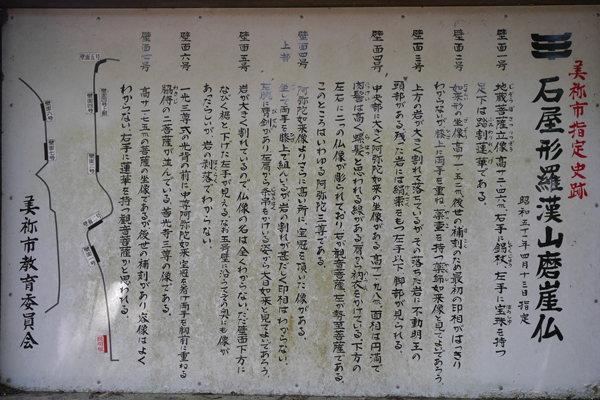 美祢市指定史跡
三 石屋形羅漢山磨崖仏
昭和五十二年四月十三日指定
壁面一号 地蔵菩薩立像、高サ二四六、右手に錫杖、左手に宝珠を持つ
足下は踏割蓮華である。
壁面二号 如来形の坐像、高サ一五二、後世の補刻のため最初の印相がはっきり
わからないが、膝上に両手を重ね、薬壷を持つ薬師如来像と見てよいであろう。
壁面三号 上方の岩が大きく割れて落ちているが、その落ちた岩に不動明王の
頭部がある。残った岩には絹索をもつ左手以下、脚部が見られる。
壁面四号 中央部に大きく阿弥陀如来の坐像がある。高サ一九八、面相は円満で
肉髻は高く、螺髪と思われる線がある。肩から衲衣をかけている。下方の
左右に二つの仏像が彫られており、右が観音菩薩、左が勢至菩薩である。
このところはいわゆる阿弥陀三尊である。
壁面四号
上部 阿弥陀如来像よりさらに高い所に宝冠を頂いた像がある。
坐して両手を膝上で組んでいるが、岩の割れが甚だしく印相はわからない。
左肩から条帛をかけている姿から大日如来と見てよいであろう。
壁面五号 岩が大きく割れているので、仏像の名は全くわからない。ただ壁面下方に
なびく裾と下げた左手が見える。なお五号壁に沿うてその奥にも像が
あったらしいが、岩の剥落でわからない。
壁面六号 一光三尊式の光背の前に中尊阿弥陀如来坐像を、右手に胸前に重ねる
脇侍の二菩薩が立っている。善光寺三尊の像である。
壁面七号 高サ一七五の菩薩の坐像であるが、後世の補刻があり、容像はよく
わからない。右手に蓮華を持つ観音菩薩かと思われる。
美祢市教育委員会